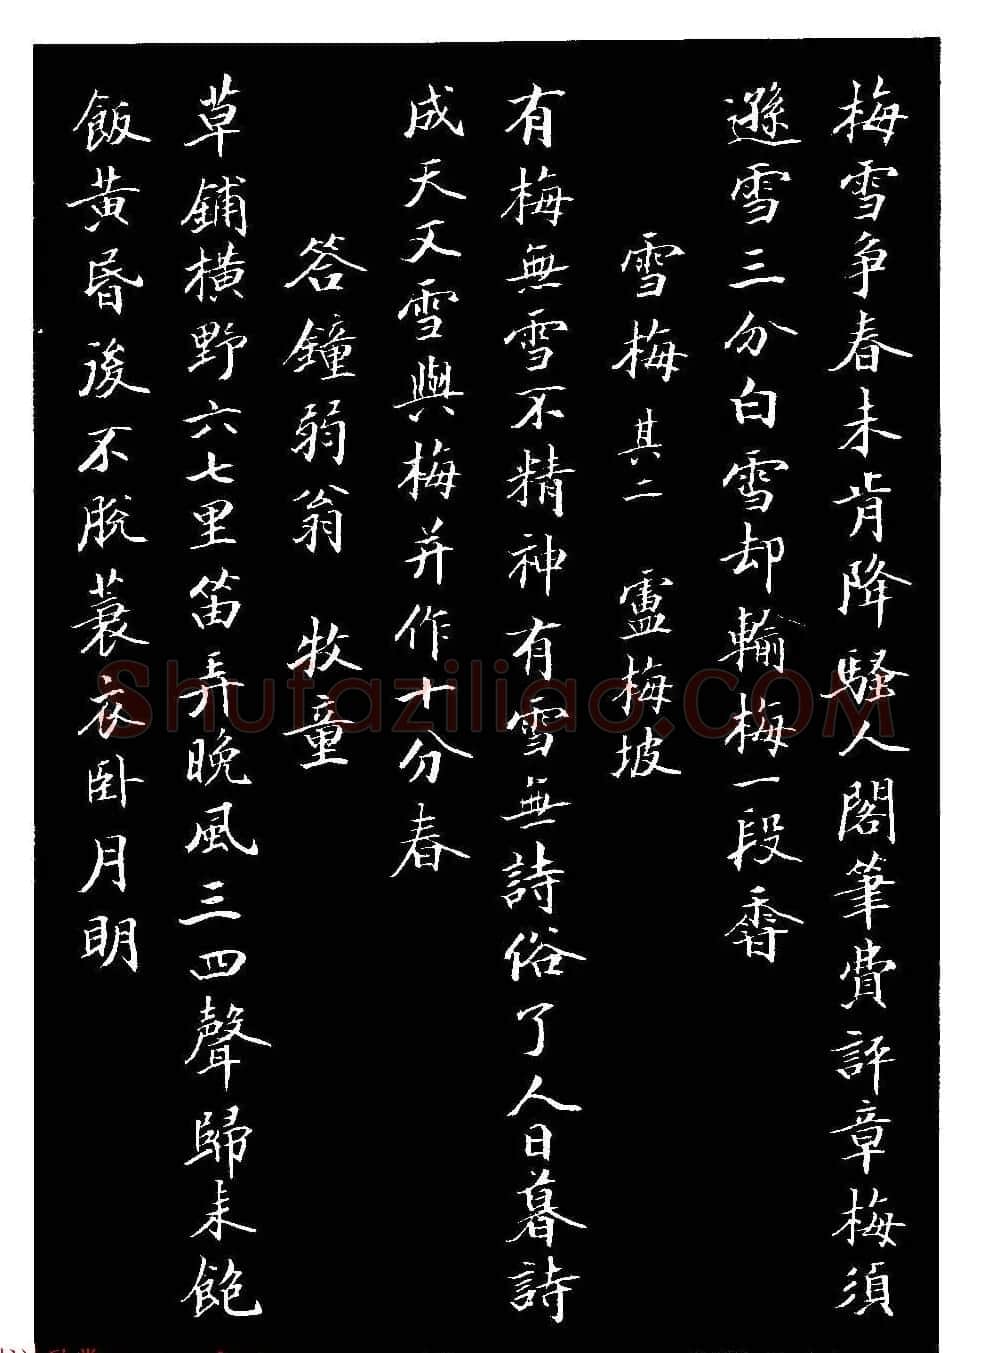 梅雪争春未肯降騷人閣筆費評章梅須
遜雪三分白雪却輸梅一段香
雪梅 其二 盧梅坡
有梅無雪不精神有雪無詩俗了人日暮詩
成天又雪與梅并作十分春
答鐘弱翁 牧童
草鋪横野六七里笛弄晚風三四聲歸来飽
飯黄昏後不脱蓑衣卧月明
Shufaziliao.COM